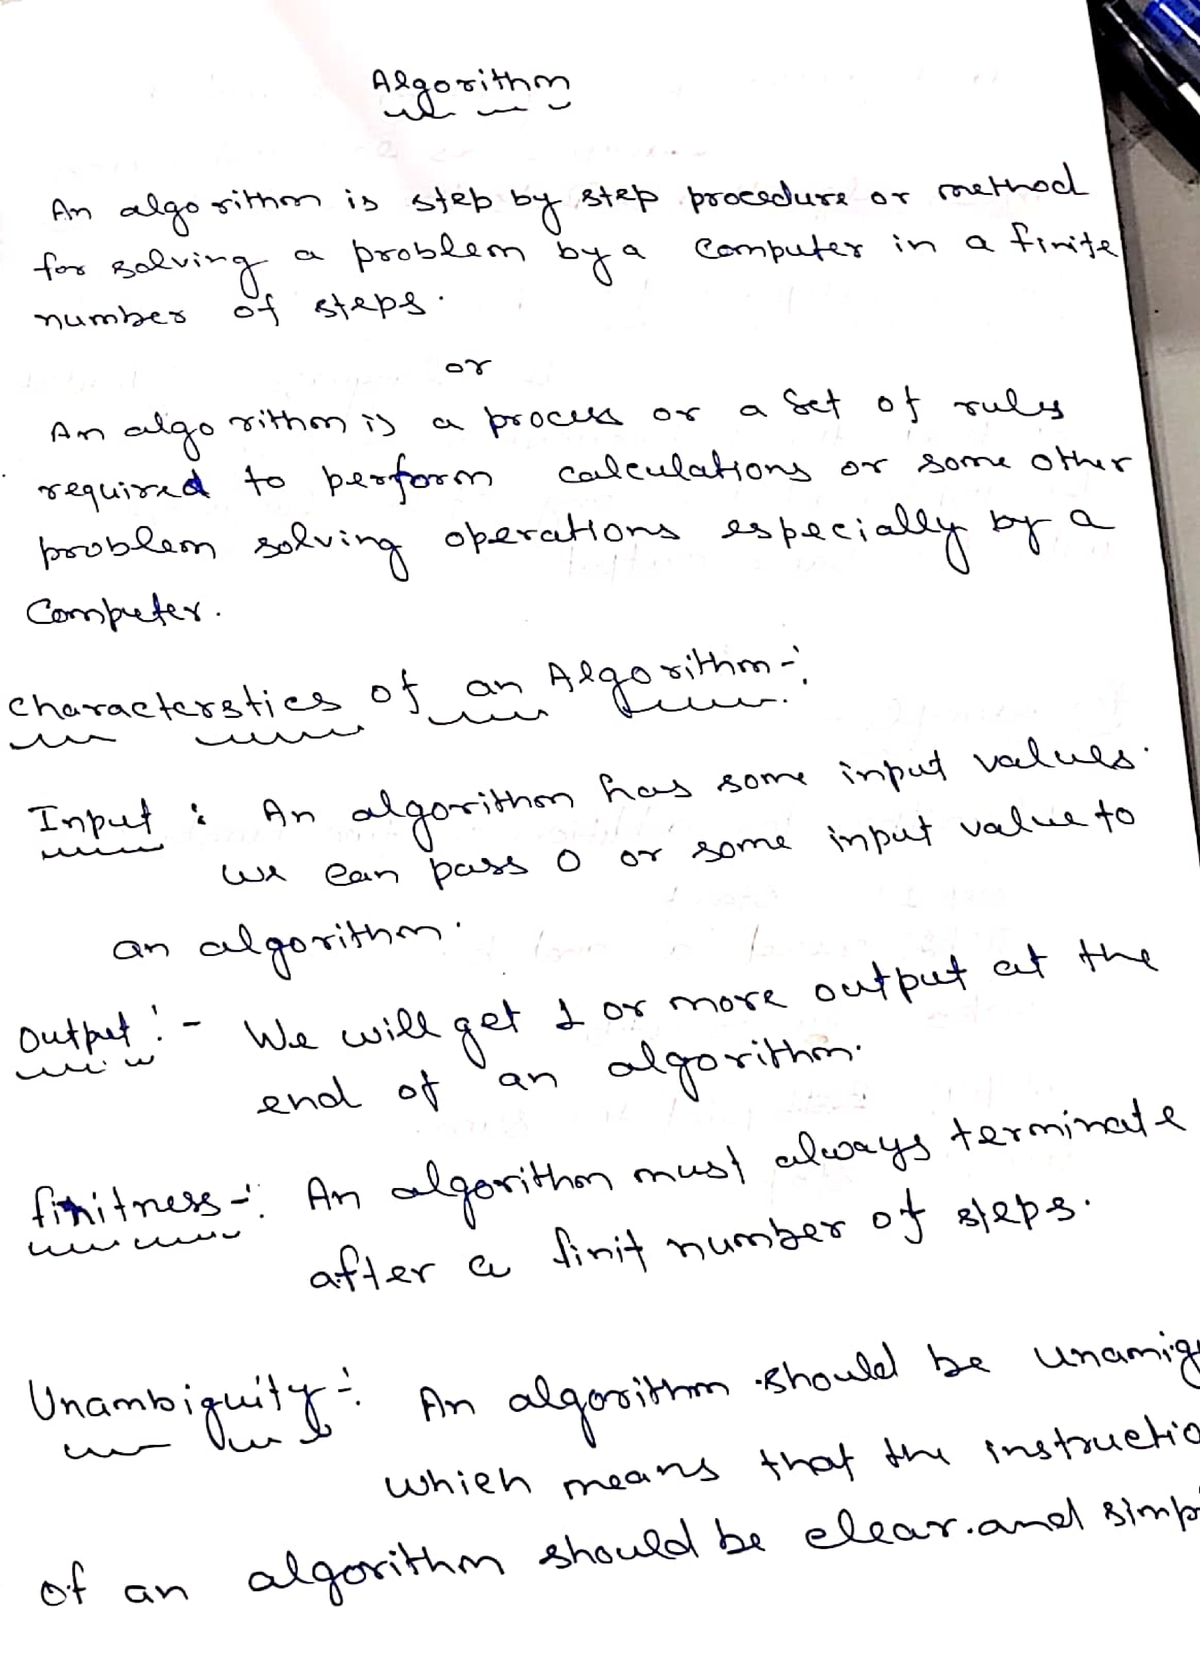 Algorithm
An algorithm is step by step procedure or method
for solving a problem by a computer in a finite
number of steps.
or
An algorithm is a process or a set of rules
required to perform calculations or some other
problem solving operations especially by a
Computer.
Characterstics of an Algorithm -:
Input : An algorithm has some input values.
we can pass 0 or some input value to
an algorithm.
Output :- We will get 1 or more output at the
end of an algorithm.
finitness -: An algorithm must always terminate
after a finit number of steps.
Unambiguity -: An algorithm should be unamig
which means that the instructio
of an algorithm should be clear. and simp